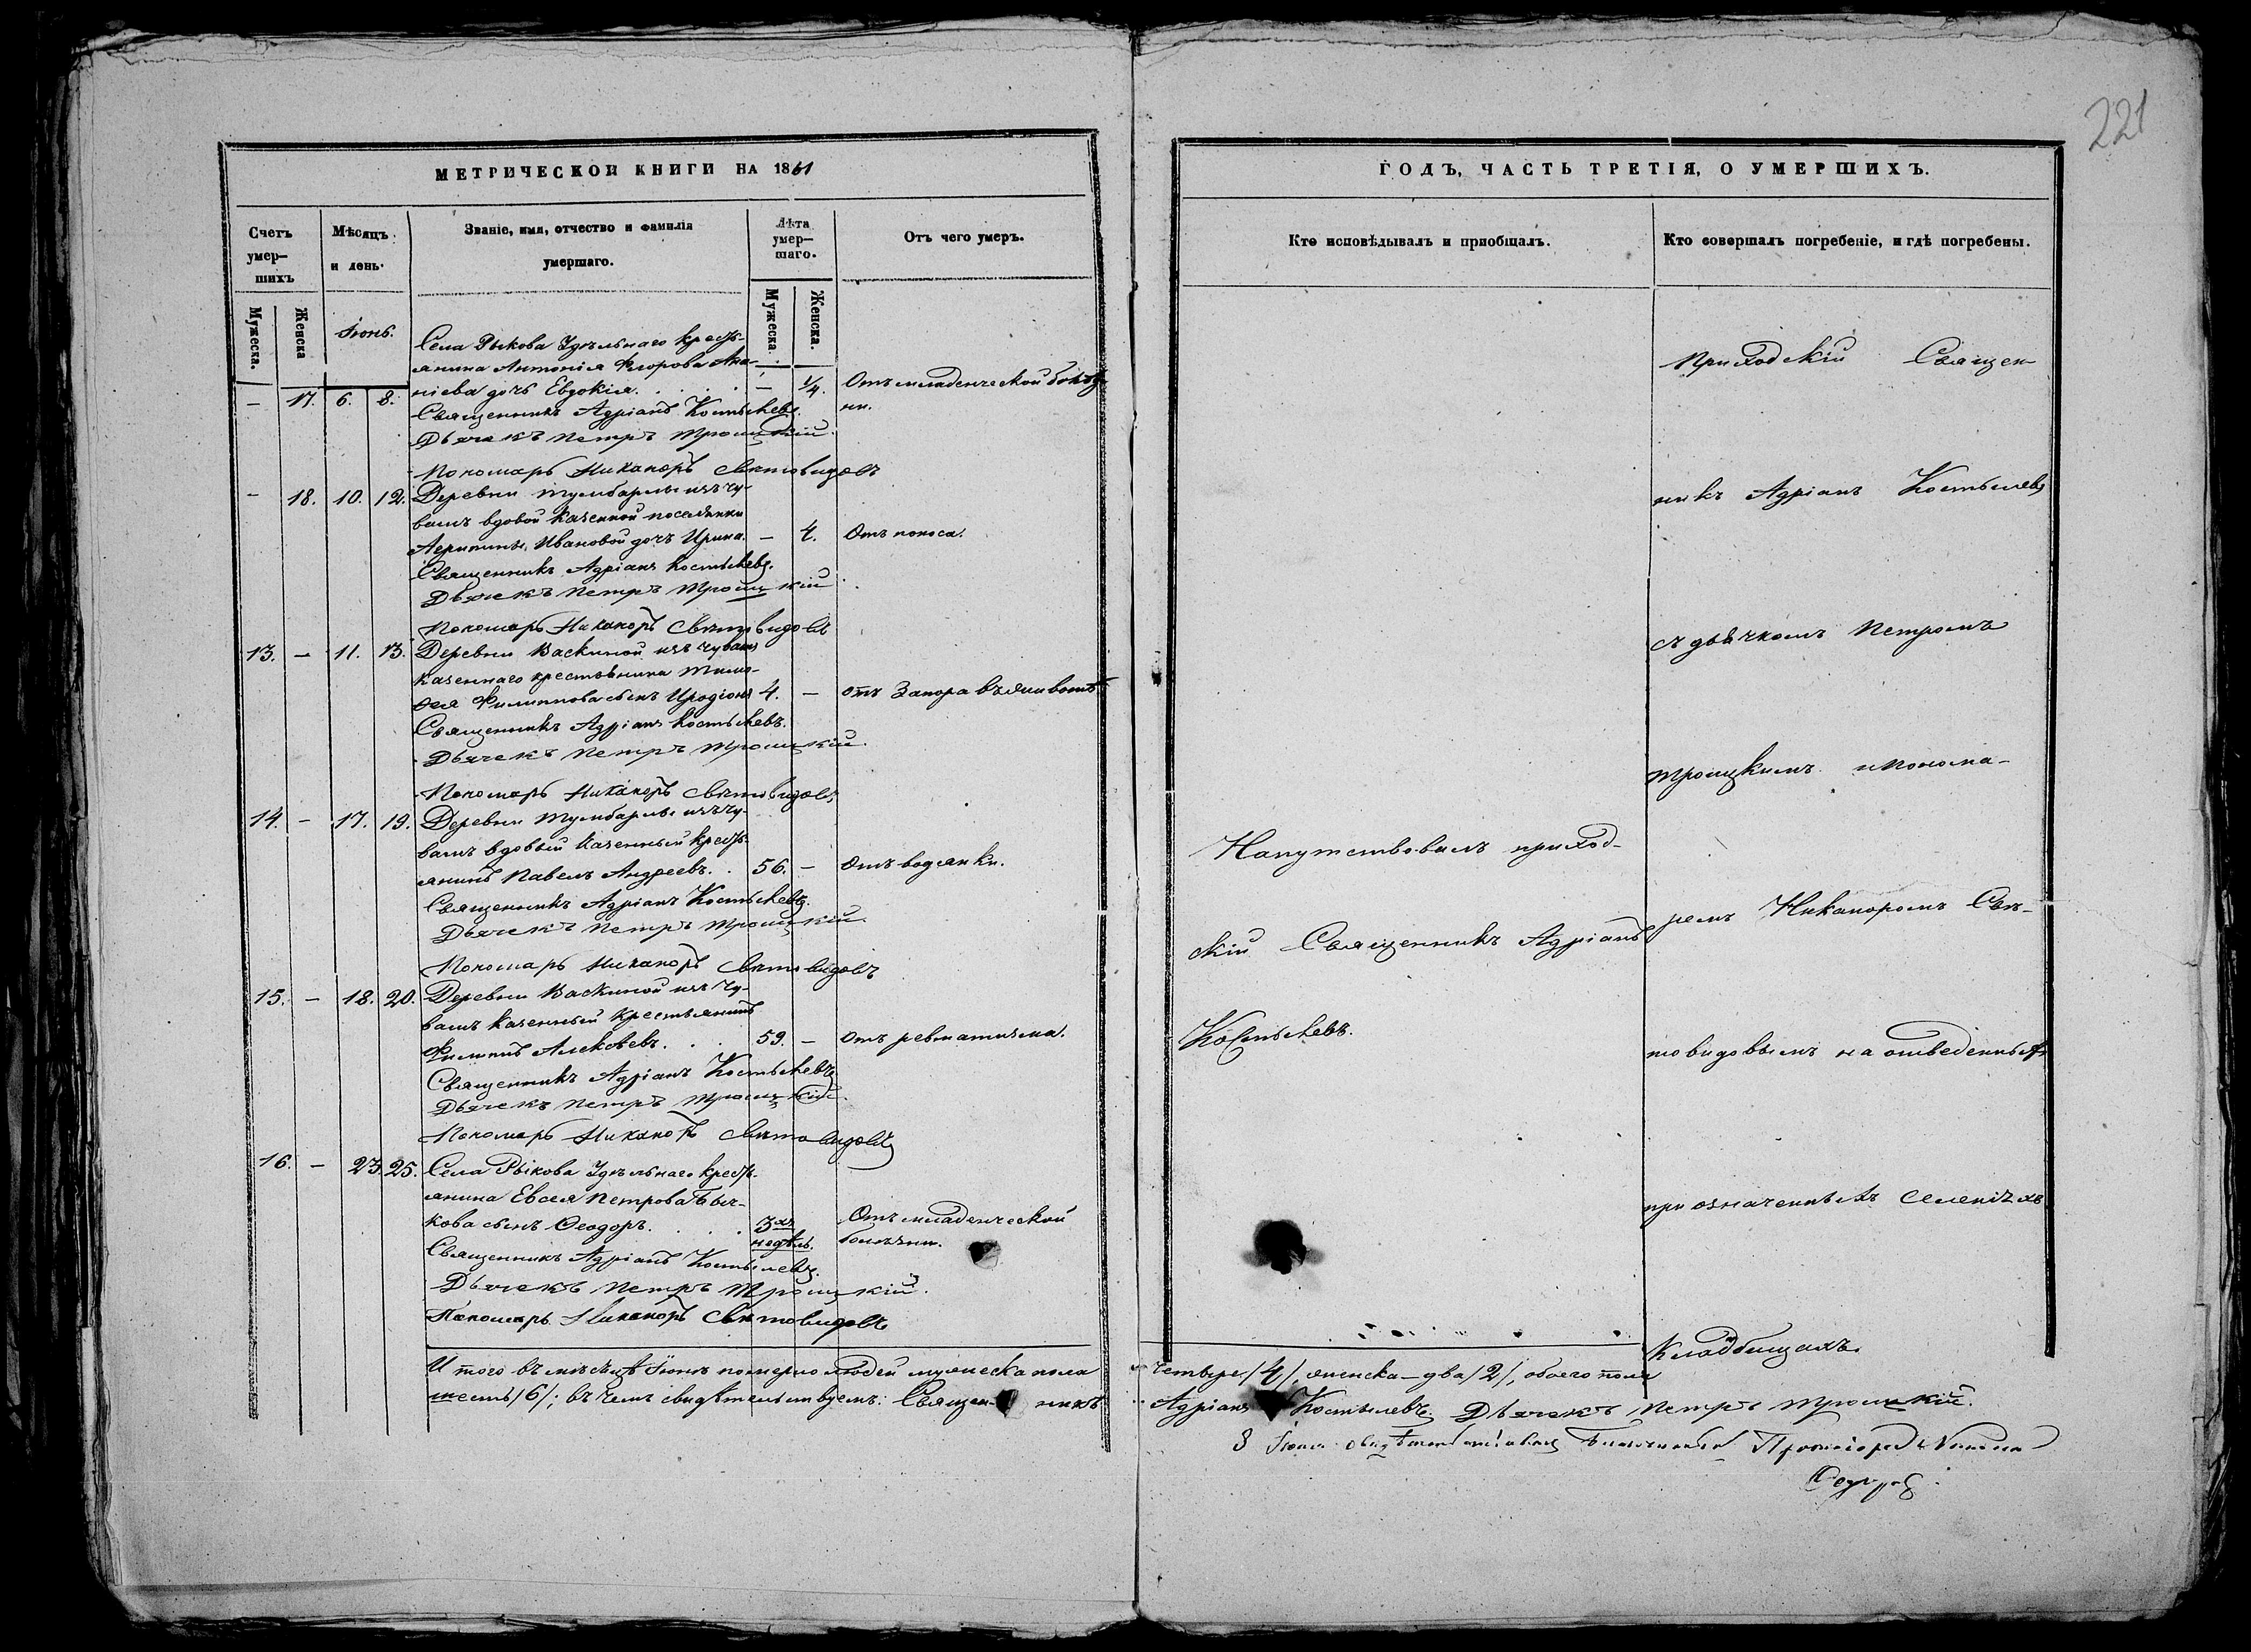 МЕТРИЧЕСКОЙ КНИГИ НА 1861
Счетъ умер-шихъ
Мужеска.
Женска
Мѣсяцъ и день.
Званіе, имя, отчество и фамилія умершаго.
Лѣта умер-шаго.
Мужеска
Женска.
Отъ чего умеръ.
Іюнь.
Села Рыкова Удѣльнаго кресть-
янина Антонія Ѳгорова Ана-
— 17. 6. 8. ніева дочь Евдокія. — ¼. Отъ младенческой болѣз-
ни.
Священникъ Адріанъ Костылевъ.
Дьячекъ Петръ Троицкій.
Пономарь Никаноръ Свѣтовидовъ
— 18. 10. 12. Деревни Тумбарлы изъ чу-
вашъ вдовой казенной поселянки
Агрипины Ивановой дочь Ирина. — 4. Отъ поноса.
Священникъ Адріанъ Костылевъ.
Дьячекъ Петръ Троицкій
Пономарь Никаноръ Свѣтовидовъ
13. — 11. 13. Деревни Васкиной изъ чувашъ
казеннаго крестьянина Тимо-
ѳея Филиппова сынъ Иродіонъ 4. — отъ Запора въ животѣ
Священникъ Адріанъ Костылевъ.
Дьячекъ Петръ Троицкій.
Пономарь Никаноръ Свѣтовидовъ
14. — 17. 19. Деревни Тумбарлы изъ чу-
вашъ вдовый казенный кресть-
янинъ Павелъ Андреевъ. 56. — Отъ водянки.
Священникъ Адріанъ Костылевъ.
Дьячекъ Петръ Троицкій.
Пономарь Никаноръ Свѣтовидовъ
15. — 18. 20. Деревни Васкиной изъ Чу-
вашъ казенный крестьянинъ
Филипъ Алексѣевъ. 59. — Отъ ревматизма.
Священникъ Адріанъ Костылевъ
Дьячекъ Петръ Троицкій.
Пономарь Никаноръ Свѣтовидовъ
16. — 23. 25. Села Рыкова Удѣльнаго кресть-
янина Евсея Петрова Быч-
кова сынъ Ѳеодоръ. 3хъ недѣль. Отъ младенческой
болѣзни.
Священникъ Адріанъ Костылевъ.
Дьячекъ Петръ Троицкій.
Пономарь Никаноръ Свѣтовидовъ
Итого въ мѣсяцѣ Іюнѣ померло людей мужеска пола
шесть /6/; въ чемъ свидѣтельствуемъ: Священникъ
221
ГОДЪ, ЧАСТЬ ТРЕТІЯ, О УМЕРШИХЪ.
Кто исповѣдывалъ и пріобщалъ.
Кто совершалъ погребеніе, и гдѣ погребены.
Напутствовалъ приход-
скій Священникъ Адріанъ
Костылевъ.
Приходскій Священ-
никъ Адріанъ Костылевъ
съ дьячкомъ Петромъ
Троицкимъ и Понома-
ремъ Никаноромъ Свѣ-
товидовымъ на отведенныхъ
при означенныхъ селеніяхъ
Кладбищахъ.
четыре /4/, женска — два /2/, обоего пола
Адріанъ Костылевъ. Дьячекъ Петръ Троицкій.